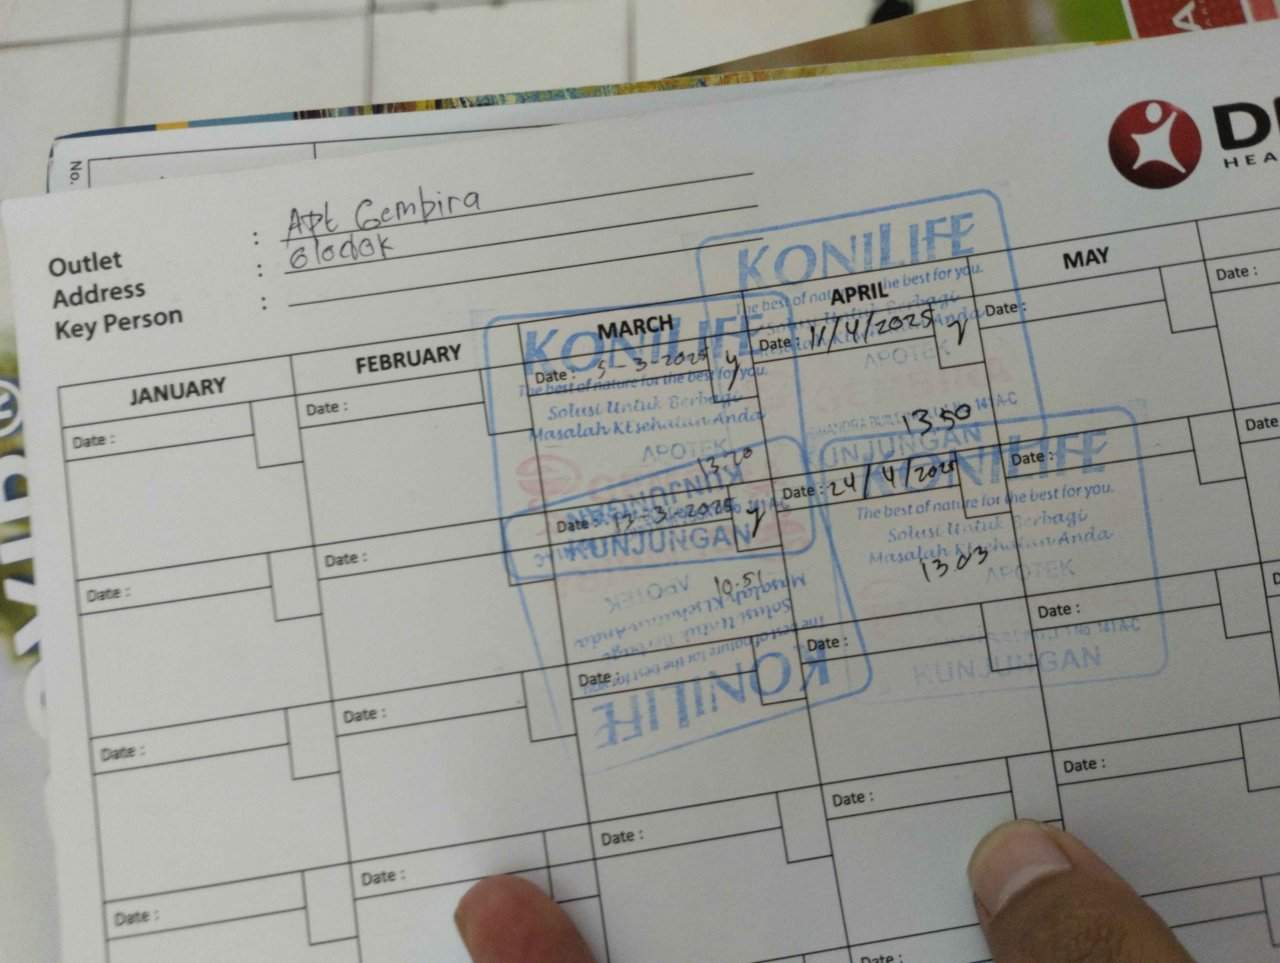 No.
Outlet : Apt Gembira
Address : Glodok
Key Person :
JANUARY
FEBRUARY
MARCH
APRIL
MAY
Date :
Date :
Date : 5-3-2025 y
Date : 11/4/2025 y
Date :
Date :
KONILIFE
The best of nature for the best for you.
Solusi Untuk Berbagi
Masalah Kesehatan Anda
APOTEK
13.20
KUNJUNGAN
KONILIFE
The best of nature for the best for you.
Solusi Untuk Berbagi
Masalah Kesehatan Anda
APOTEK
141 A-C
13.50
KUNJUNGAN
Date :
Date :
Date : 2025 y
Date : 24/4/2025
Date :
Date
KUNJUNGAN
10.51
APOTEK
Masalah Kesehatan Anda
Solusi Untuk Berbagi
The best of nature for the best for you.
KONILIFE
KONILIFE
The best of nature for the best for you.
Solusi Untuk Berbagi
Masalah Kesehatan Anda
13.03
APOTEK
No. 141 A-C
KUNJUNGAN
Date :
Date :
Date :
Date :
Date :
Date :
Date :
Date :
Date :
Date :